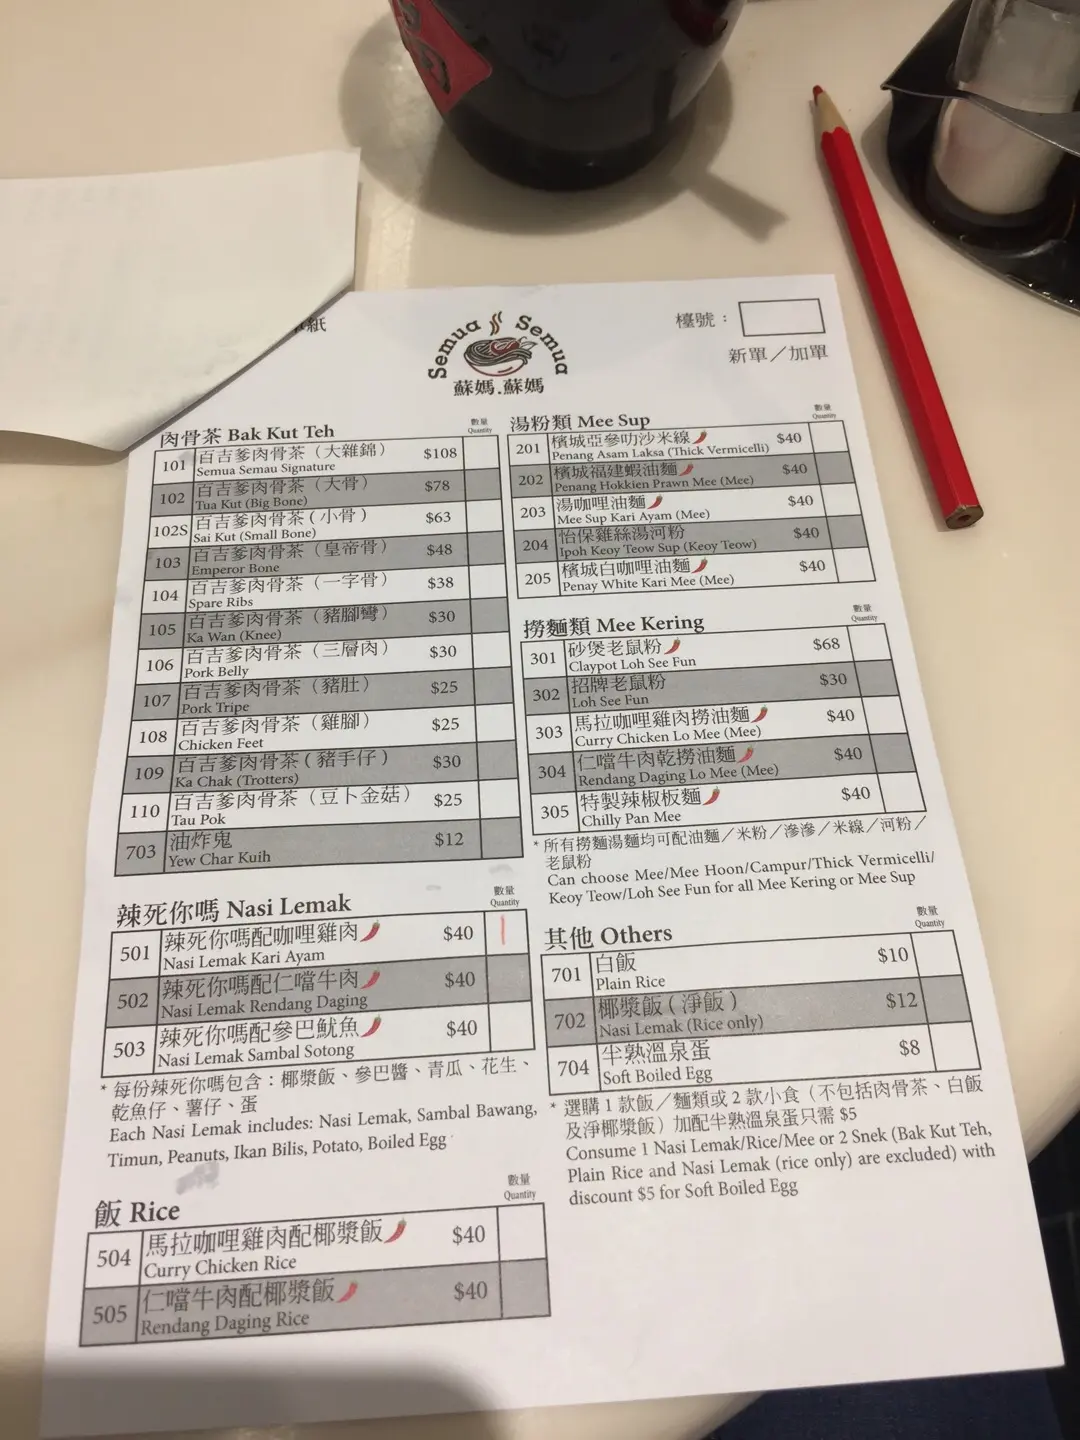 紙
Semua Semua
蘇媽.蘇媽
檯號：
新單／加單
肉骨茶 Bak Kut Teh
數量
Quantity
101 百吉爹肉骨茶（大雜錦） $108
Semua Semau Signature
102 百吉爹肉骨茶（大骨） $78
Tua Kut (Big Bone)
102S 百吉爹肉骨茶（小骨） $63
Sai Kut (Small Bone)
103 百吉爹肉骨茶（皇帝骨） $48
Emperor Bone
104 百吉爹肉骨茶（一字骨） $38
Spare Ribs
105 百吉爹肉骨茶（豬腳彎） $30
Ka Wan (Knee)
106 百吉爹肉骨茶（三層肉） $30
Pork Belly
107 百吉爹肉骨茶（豬肚） $25
Pork Tripe
108 百吉爹肉骨茶（雞腳） $25
Chicken Feet
109 百吉爹肉骨茶（豬手仔） $30
Ka Chak (Trotters)
110 百吉爹肉骨茶（豆卜金菇） $25
Tau Pok
703 油炸鬼 $12
Yew Char Kuih
辣死你嗎 Nasi Lemak
數量
Quantity
501 辣死你嗎配咖哩雞肉 $40
Nasi Lemak Kari Ayam
502 辣死你嗎配仁噹牛肉 $40
Nasi Lemak Rendang Daging
503 辣死你嗎配參巴魷魚 $40
Nasi Lemak Sambal Sotong
* 每份辣死你嗎包含：椰漿飯、參巴醬、青瓜、花生、
乾魚仔、薯仔、蛋
Each Nasi Lemak includes: Nasi Lemak, Sambal Bawang,
Timun, Peanuts, Ikan Bilis, Potato, Boiled Egg
飯 Rice
數量
Quantity
504 馬拉咖哩雞肉配椰漿飯 $40
Curry Chicken Rice
505 仁噹牛肉配椰漿飯 $40
Rendang Daging Rice
湯粉類 Mee Sup
數量
Quantity
201 檳城亞參叻沙米線 $40
Penang Asam Laksa (Thick Vermicelli)
202 檳城福建蝦油麵 $40
Penang Hokkien Prawn Mee (Mee)
203 湯咖哩油麵 $40
Mee Sup Kari Ayam (Mee)
204 怡保雞絲湯河粉 $40
Ipoh Keoy Teow Sup (Keoy Teow)
205 檳城白咖哩油麵 $40
Penay White Kari Mee (Mee)
撈麵類 Mee Kering
數量
Quantity
301 砂煲老鼠粉 $68
Claypot Loh See Fun
302 招牌老鼠粉 $30
Loh See Fun
303 馬拉咖哩雞肉撈油麵 $40
Curry Chicken Lo Mee (Mee)
304 仁噹牛肉乾撈油麵 $40
Rendang Daging Lo Mee (Mee)
305 特製辣椒板麵 $40
Chilly Pan Mee
* 所有撈麵湯麵均可配油麵／米粉／滲滲／米線／河粉／
老鼠粉
Can choose Mee/Mee Hoon/Campur/Thick Vermicelli/
Keoy Teow/Loh See Fun for all Mee Kering or Mee Sup
其他 Others
數量
Quantity
701 白飯 $10
Plain Rice
702 椰漿飯（淨飯） $12
Nasi Lemak (Rice only)
704 半熟溫泉蛋 $8
Soft Boiled Egg
* 選購 1 款飯／麵類或 2 款小食（不包括肉骨茶、白飯
及淨椰漿飯）加配半熟溫泉蛋只需 $5
Consume 1 Nasi Lemak/Rice/Mee or 2 Snek (Bak Kut Teh,
Plain Rice and Nasi Lemak (rice only) are excluded) with
discount $5 for Soft Boiled Egg